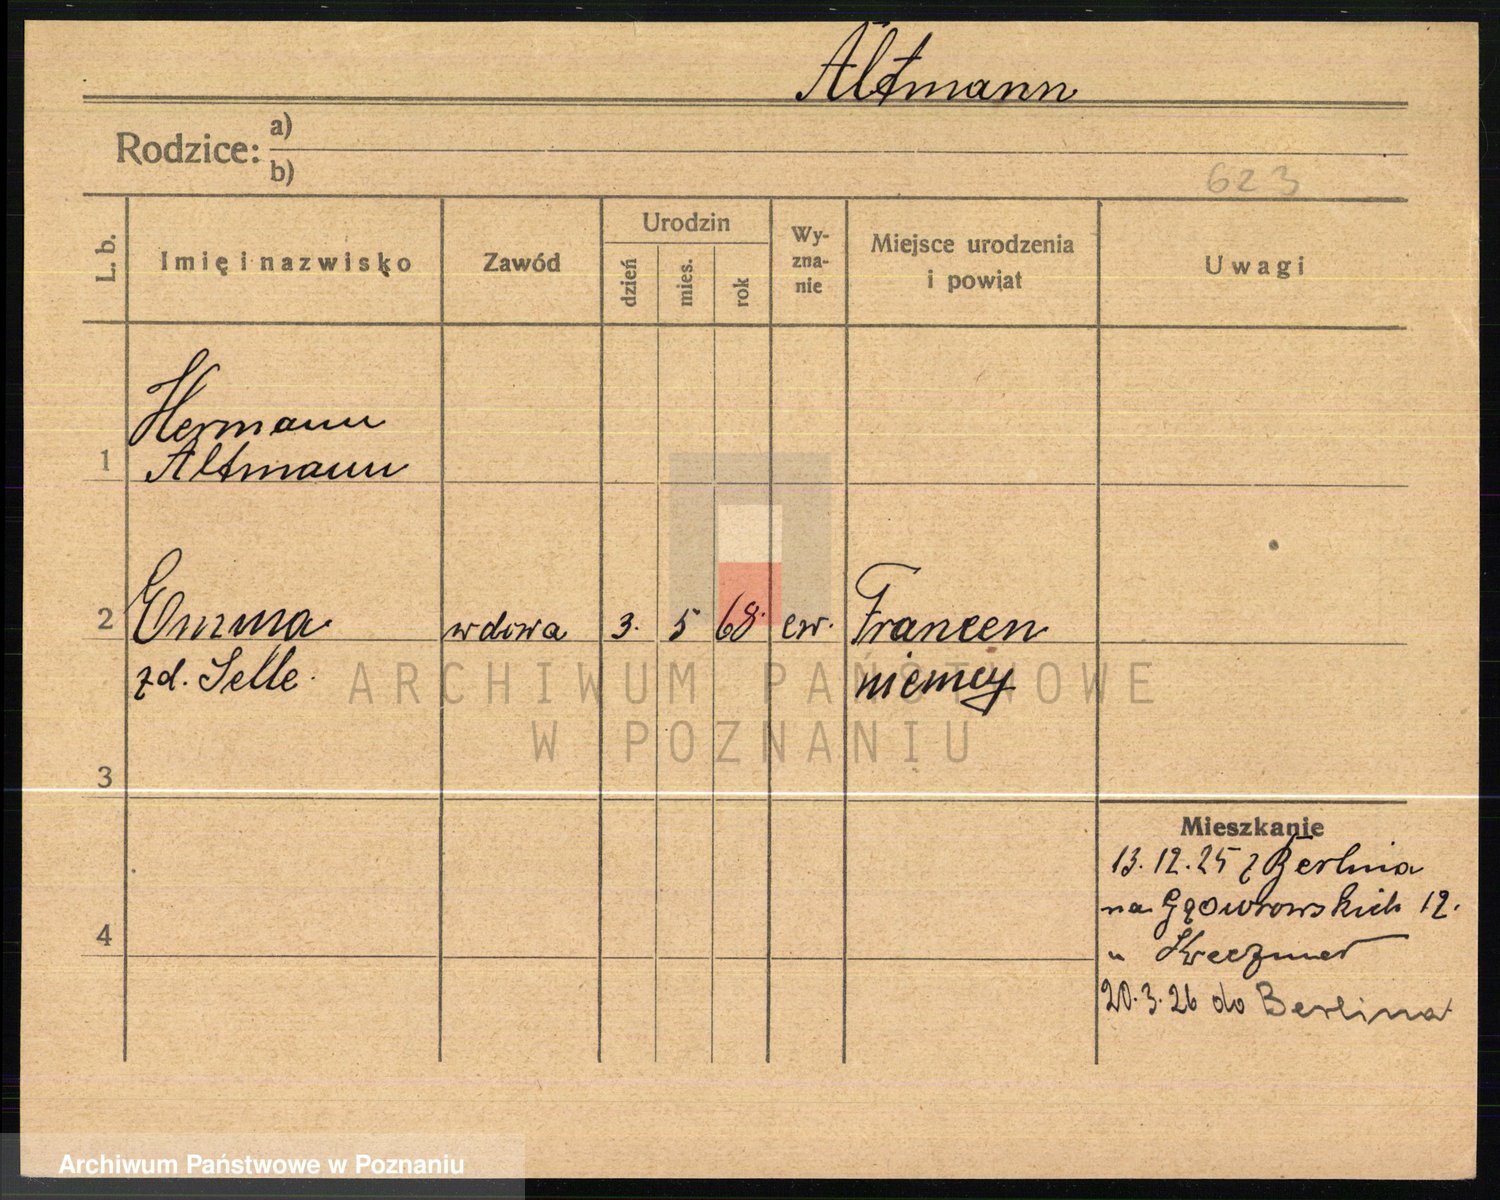 Altmann
Rodzice: a)
b)
623
L. b.
Imię i nazwisko
Zawód
Urodzin
dzień
mies.
rok
Wy-
zna-
nie
Miejsce urodzenia
i powiat
Uwagi
Hermann
1 Altmann
2 Emma wdowa 3. 5 68. ew. Francen
zd. Selle. niemcy
3
Mieszkanie
13.12.25 z Berlina
na Gąowrowskich 12.
4
u Kreczmer
20.3.26 do Berlina
ARCHIWUM PAŃSTWOWE
W POZNANIU
Archiwum Państwowe w Poznaniu